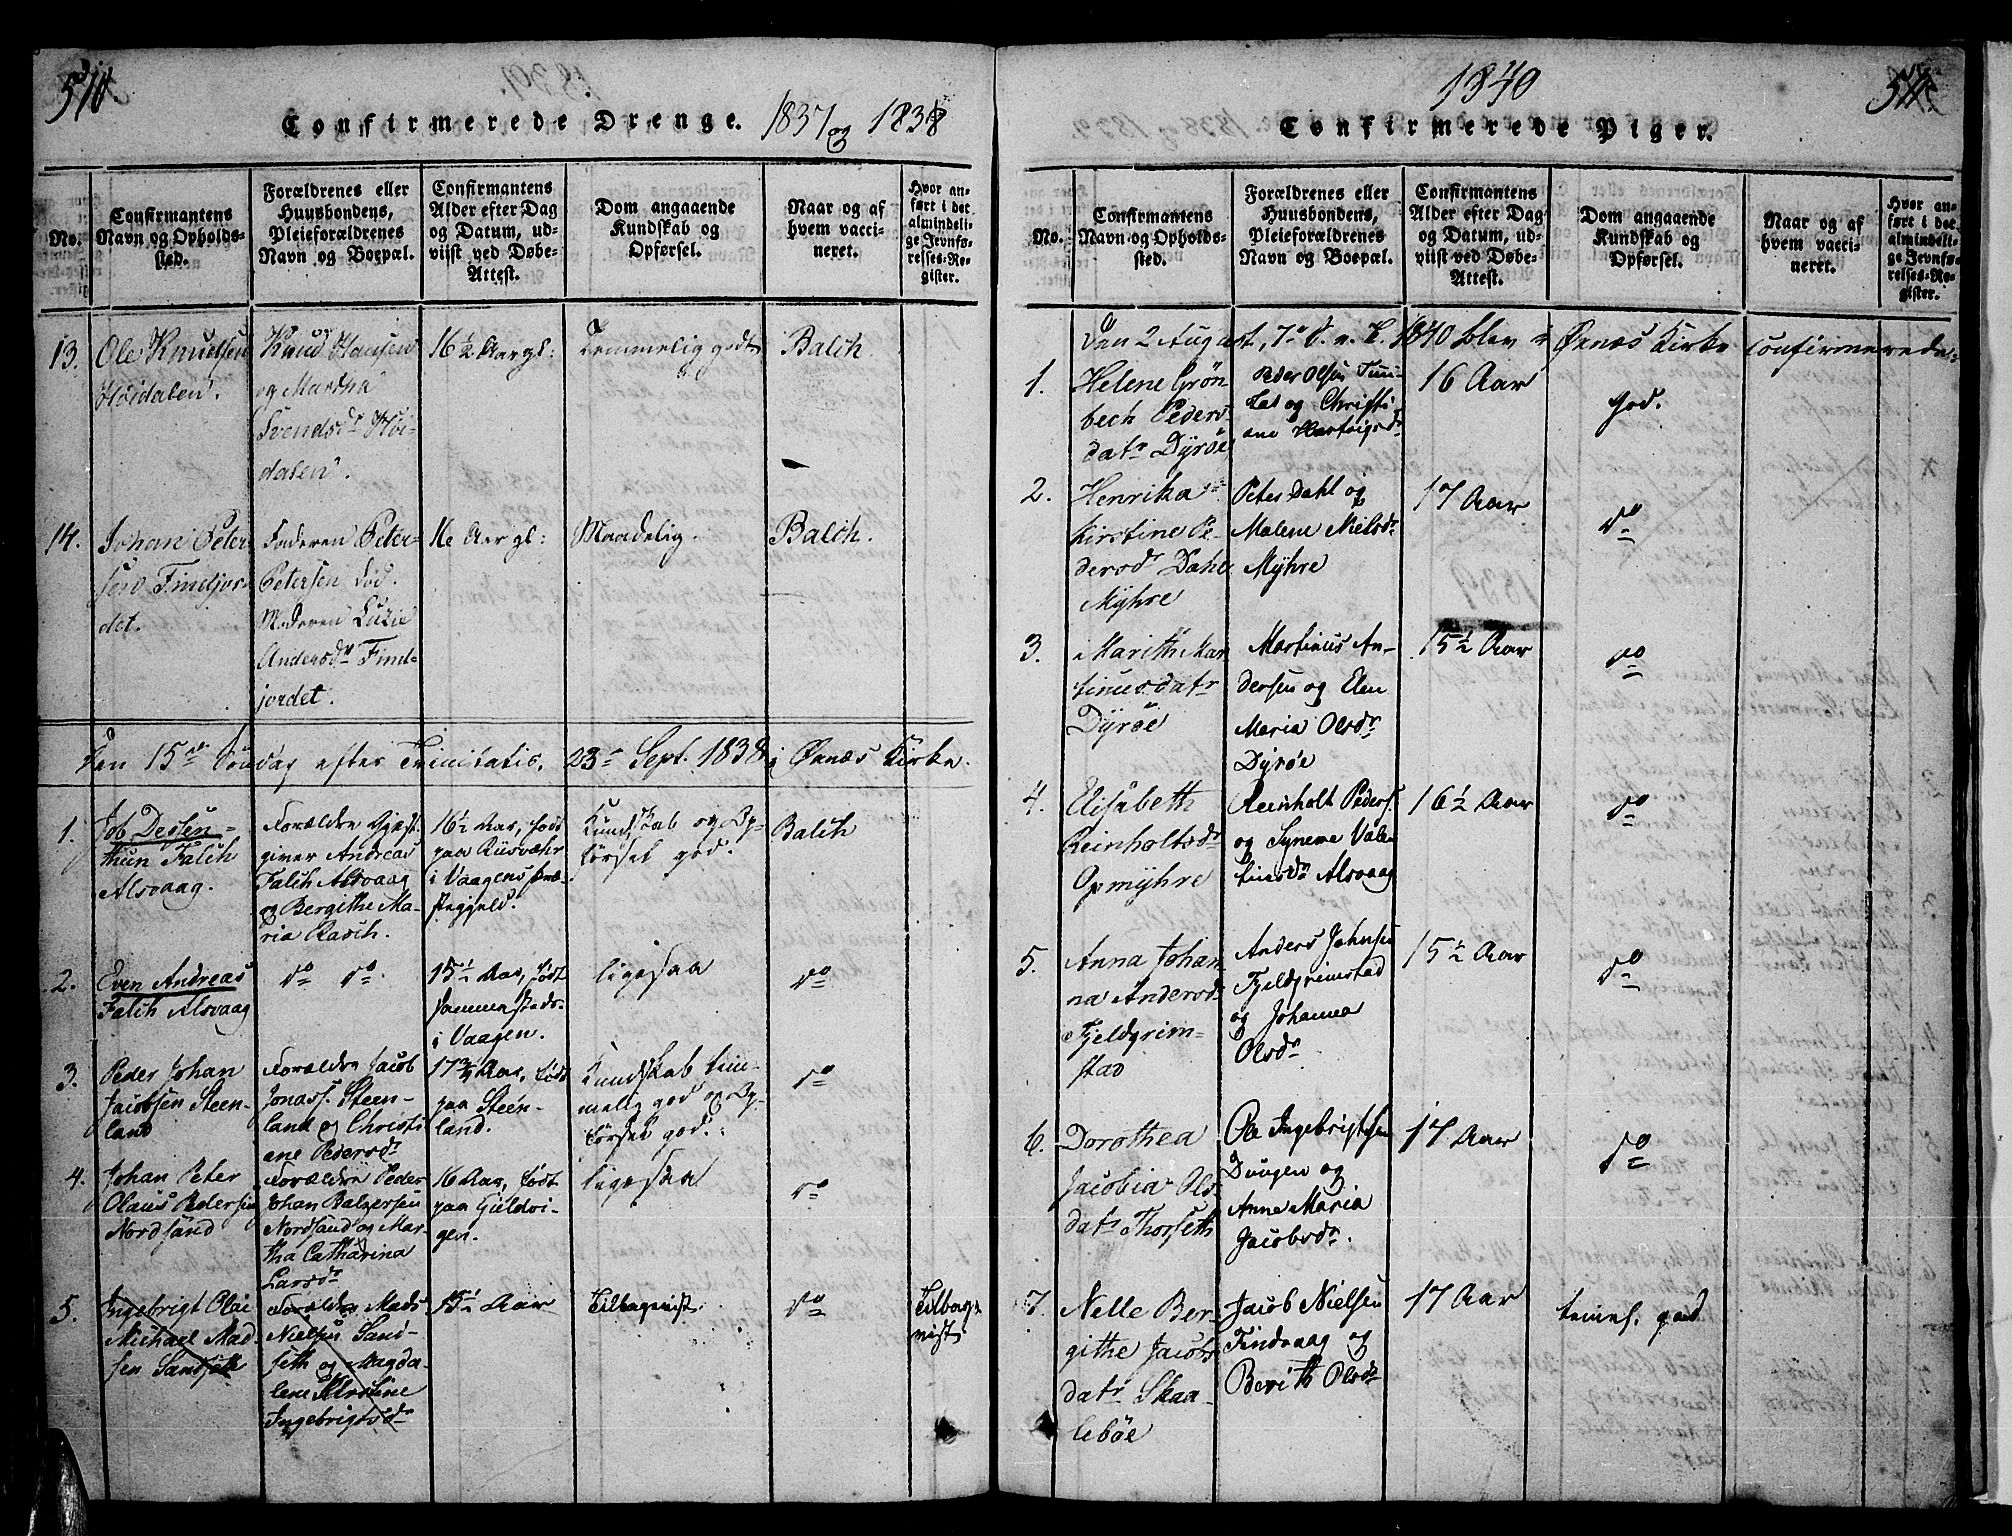 510
Confirmerede Drenge. 1837 og 1838
No.
Confirmantens
Navn og Opholds-
sted.
Forældrenes eller
Huusbondens,
Pleieforældrenes
Navn og Boepæl.
Confirmantens
Alder efter Dag
og Datum, ud-
viist ved Døbe-
Attest.
Dom angaaende
Kundskab og
Opførsel.
Naar og af
hvem vacci-
neret.
Hvor an-
ført i det
almindeli-
ge Jevnfø-
relses-Re-
gister.
13.
Ole Knudsen
Høidalen.
Knud Hansen
og Martha
Svendsdr Høi-
dalen.
16½ Aar gl:
Temmelig godt
Balch
14.
Johan Peter-
sen Findjor-
det.
Faderen Peter
Petersen død.
Moderen Luzie
Andersdr Find-
jordet.
16 Aar gl:
Maadelig.
Balch.
Den 15de Søndag efter Trinitatis, 23de Sept. 1838 i Øxnæs Kirke.
1.
Job Dessen-
thun Falch
Alsvaag.
Forældre Gjæst-
giver Andreas
Falch Alsvaag
og Bergithe Ma-
ria Rasch.
16½ Aar, født
paa Riisværhr
i Vaagens Præ-
stegjeld.
Kundskab og Op-
førsel god.
Balch
2.
Even Andreas
Falch Alsvaag
do do.
15½ Aar, født
sammensteds
i Vaagen.
ligesaa
do
3.
Peder Johan
Jacobsen Steen-
land
Forældre Jacob
Jonass. Steen-
land og Christi
ane Pedersdr
17¾ Aar, født
paa Steen-
land.
Kundskab tem-
melig god og Op-
førsel god.
do
4.
Johan Peter
Olaus Pedersen
Nordsand
Forældre Peder
Johan Balzersen
Nordsand og Mar-
tha Catharina
Larsdr
16 Aar, født
paa Gieldvi-
gen.
ligesaa
do
5.
Ingebrigt Olai
Michael Mad-
sen Sandseth
Forældre Mads
Nielsen Sand-
seth og Magda-
lene Kirstine
Ingebrigtsdr
15½ Aar
Tilbageviist.
do
Tilbage-
viist
1840
511
Confirmerede Piger.
No.
Confirmantens
Navn og Opholds-
sted.
Forældrenes eller
Huusbondens,
Pleieforældrenes
Navn og Boepæl.
Confirmantens
Alder efter Dag
og Datum, ud-
viist ved Døbe-
Attest.
Dom angaaende
Kundskab og
Opførsel.
Naar og af
hvem vacci-
neret.
Hvor an-
ført i det
almindeli-
ge Jevnfø-
relses-Re-
gister.
Den 2 August, 7de S. e. T. 1840 blev i Øxnæs Kirke confirmerede:
1.
Helene Grøn
bech Peders
datr Dyrøe
Peder Olsen
og Christi
ane Hartvigsdr
16 Aar
god.
2.
Henrika
Kirstine Pe-
dersdr Dahl
Myhre
Peter Dahl og
Malene Nielsdr
Myhre
17 Aar
do
3.
Marith Mar
tinusdatr
Dyrøe
Martinus An-
dersen og Elen
Maria Olsdr
Dyrøe
15½ Aar
do
4.
Elisabeth
Reinholtsdr
Opmyhre
Reinholt Peders
og Synene Valen
tinsdr Alsvaag
16½ Aar
do
5.
Anna Johan
na Andersdr
Fjeldgrim-
stad
Anders Johnsen
Fjeldgrimstad
og Johanna
Olsdr
15½ Aar
do
6.
Dorothea
Jacobia Ols
datr Thorseth
Ole Ingebrigtsen
Dungen og
Anne Maria
Jacobsdr.
17 Aar
do
7.
Nelle Ber-
githe Jacobs
datr Skaa-
lebøe
Jacob Nielsen
Findvaag og
Berith Olsdr
17 Aar
temml. god